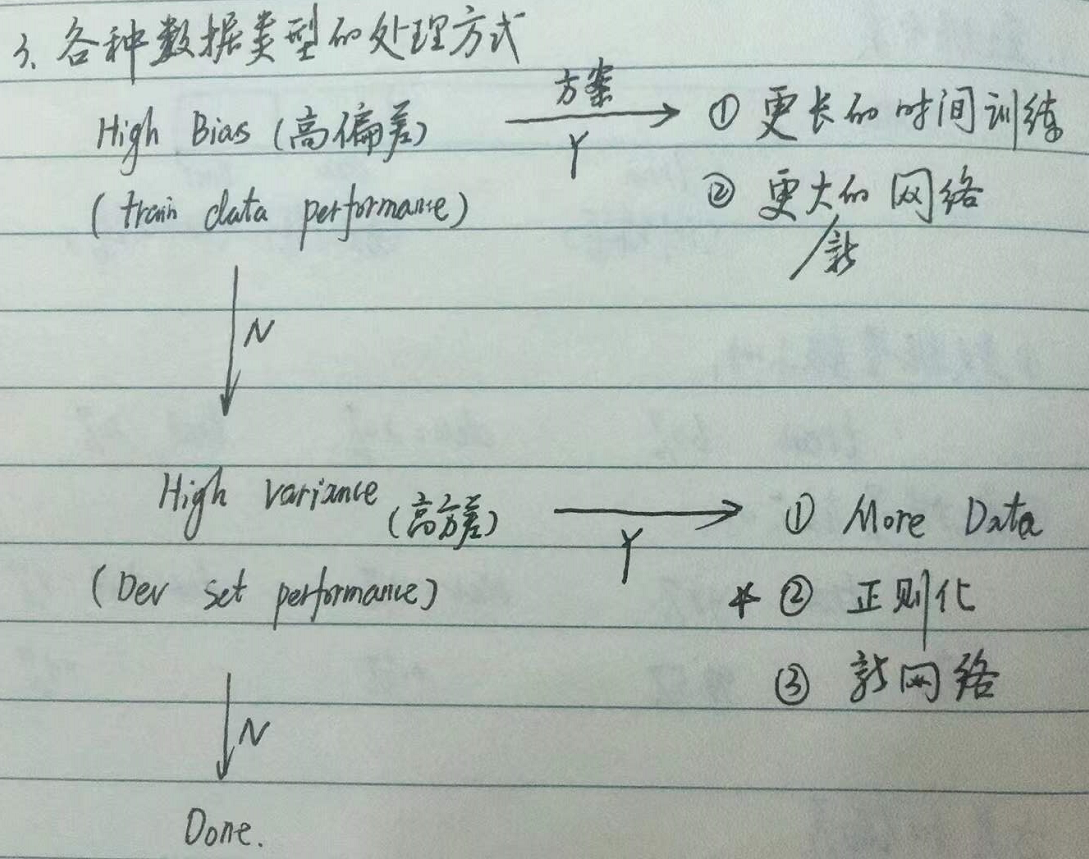 3. 各种数据类型的处理方式
High Bias (高偏差) 方案 Y ① 更长的时间训练
(train data performance) ② 更大的网络
/新
N
High variance (高方差) Y ① More Data
(Dev set performance) * ② 正则化
③ 新网络
N
Done.